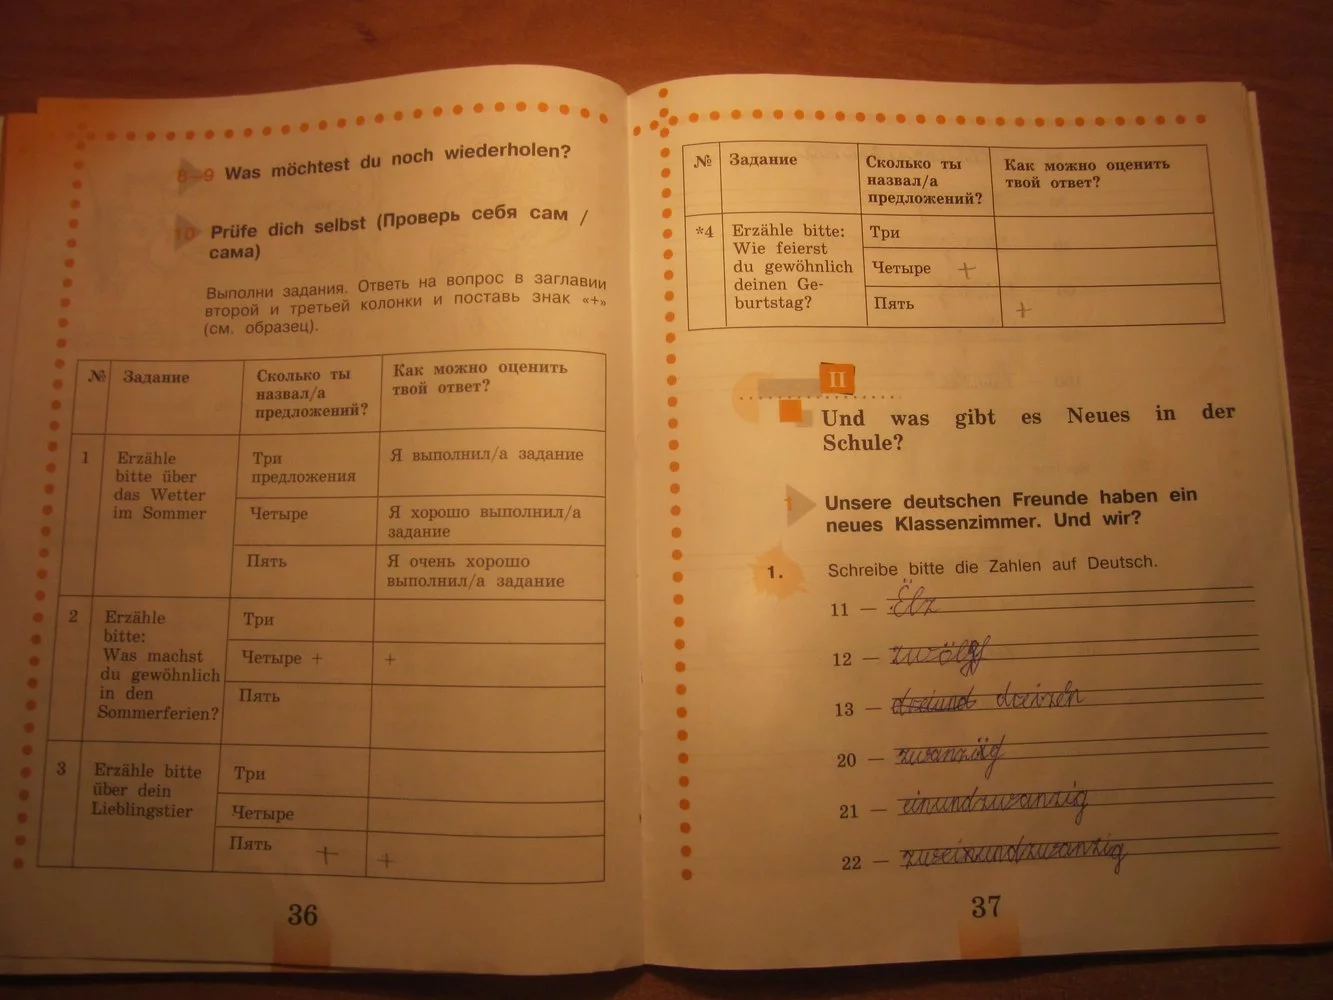 8–9 Was möchtest du noch wiederholen?
10 Prüfe dich selbst (Проверь себя сам /
сама)
Выполни задания. Ответь на вопрос в заглавии
второй и третьей колонки и поставь знак «+»
(см. образец).
№ Задание Сколько ты Как можно оценить
назвал/а твой ответ?
предложений?
1 Erzähle Три Я выполнил/а задание
bitte über предложения
das Wetter
im Sommer Четыре Я хорошо выполнил/а
задание
Пять Я очень хорошо
выполнил/а задание
2 Erzähle Три
bitte:
Was machst Четыре + +
du gewöhnlich
in den Пять
Sommerferien?
3 Erzähle bitte Три
über dein
Lieblingstier Четыре
Пять + +
36
№ Задание Сколько ты Как можно оценить
назвал/а твой ответ?
предложений?
*4 Erzähle bitte: Три
Wie feierst
du gewöhnlich Четыре +
deinen Ge-
burtstag? Пять +
II
Und was gibt es Neues in der
Schule?
1 Unsere deutschen Freunde haben ein
neues Klassenzimmer. Und wir?
1. Schreibe bitte die Zahlen auf Deutsch.
11 —
12 —
13 —
20 —
21 — einundzwanzig
22 —
37